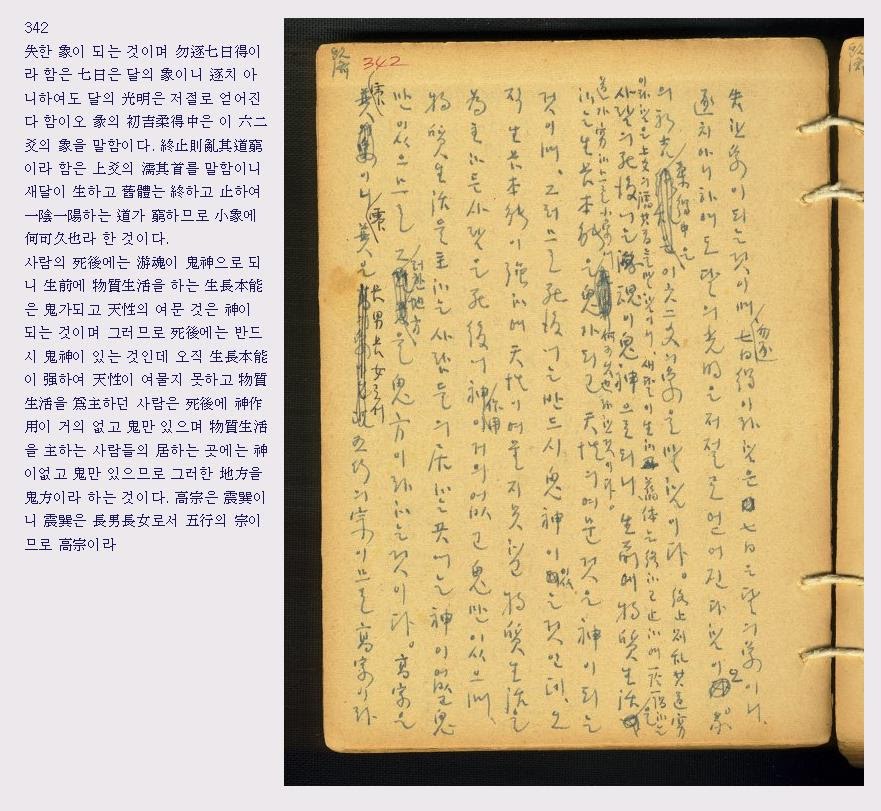 342
失한 象이 되는 것이며 勿逐七日得이
라 함은 七日은 달의 象이니 逐치 아
니하여도 달의 光明은 저절로 얻어진
다 함이오 象의 初吉柔得中은 이 六二
爻의 象을 말함이다. 終止則亂其道窮
이라 함은 上爻의 濡其首를 말함이니
새달이 生하고 舊體는 終하고 止하여
一陰一陽하는 道가 窮하므로 小象에
何可久也라 한 것이다.
사람의 死後에는 游魂이 鬼神으로 되
니 生前에 物質生活을 하는 生長本能
은 鬼가되고 天性의 여문 것은 神이
되는 것이며 그러므로 死後에는 반드
시 鬼神이 있는 것인데 오직 生長本能
이 强하여 天性이 여물지 못하고 物質
生活을 爲主하던 사람은 死後에 神作
用이 거의 없고 鬼만 있으며 物質生活
을 主하는 사람들의 居하는 곳에는 神
이없고 鬼만 있으므로 그러한 地方을
鬼方이라 하는 것이다. 高宗은 震巽이
니 震巽은 長男長女로서 五行의 宗이
므로 高宗이라
342
失한 象이 되는 것이며 七日得이라 함은 七日은 달의 象이니
勿逐
逐치 아니하여도 달의 光明은 저절로 얻어진다 함이오 象
柔得中은
이 六二爻의 象을 말함이다. 終止則亂其道窮
이라 함은 上爻의 濡其首를 말함이니 새달이 生하고 舊體는 終하고 止하여 一陰一陽하는
사람의 死後에는 游魂이 鬼神으로 되니 生前에 物質生活을
道가 窮하므로 小象에 何可久也라 한 것이다.
하는 生長本能은 鬼가되고 天性의 여문 것은 神이 되는
것이며 그러므로 死後에는 반드시 鬼神이 있는 것인데 오
직 生長本能이 强하여 天性이 여물지 못하고 物質生活을
爲主하든 사람은 死後에 神作用이 거의 없고 鬼만 있으며
物質生活을 主하는 사람들의 居하는 곳에는 神이 없고 鬼
만 있으므로 그러한 地方을 鬼方이라 하는 것이다. 高宗은
震巽이니 震巽은 長男長女로서 五行의 宗이므로 高宗이라